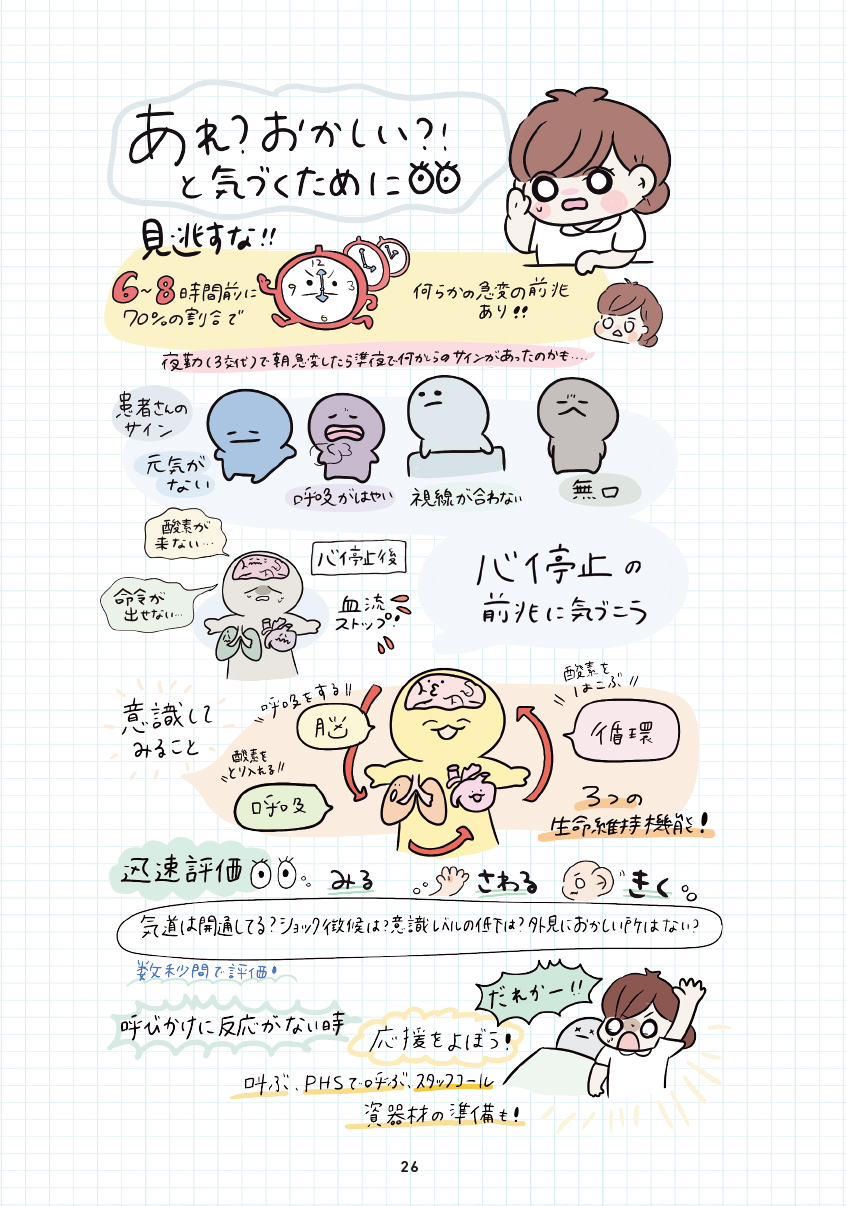 あれ?おかしい?!
と気づくために
見逃すな!!
6~8時間前に
70%の割合で
12
9
3
何らかの急変の前兆
あり!!
夜勤(3交代)で朝急変したら準夜で何かしらのサインがあったのかも....
患者さんの
サイン
元気が
ない
呼吸がはやい
視線が合わない
無口
酸素が
来ない…
命令が
出せない…
心停止後
血流
ストップ!
心停止の
前兆に気づこう
意識して
みること
呼吸をする!!
脳
酸素を
とり入れる!!
呼吸
酸素を
はこぶ!!
循環
3つの
生命維持機能!
迅速評価
みる
さわる
きく
気道は開通してる?ショック徴候は?意識レベルの低下は?外見におかしい所はない?
数秒間で評価!
呼びかけに反応がない時
応援をよぼう!
だれかー!!
叫ぶ、PHSで呼ぶ、スタッフコール
資器材の準備も!
26